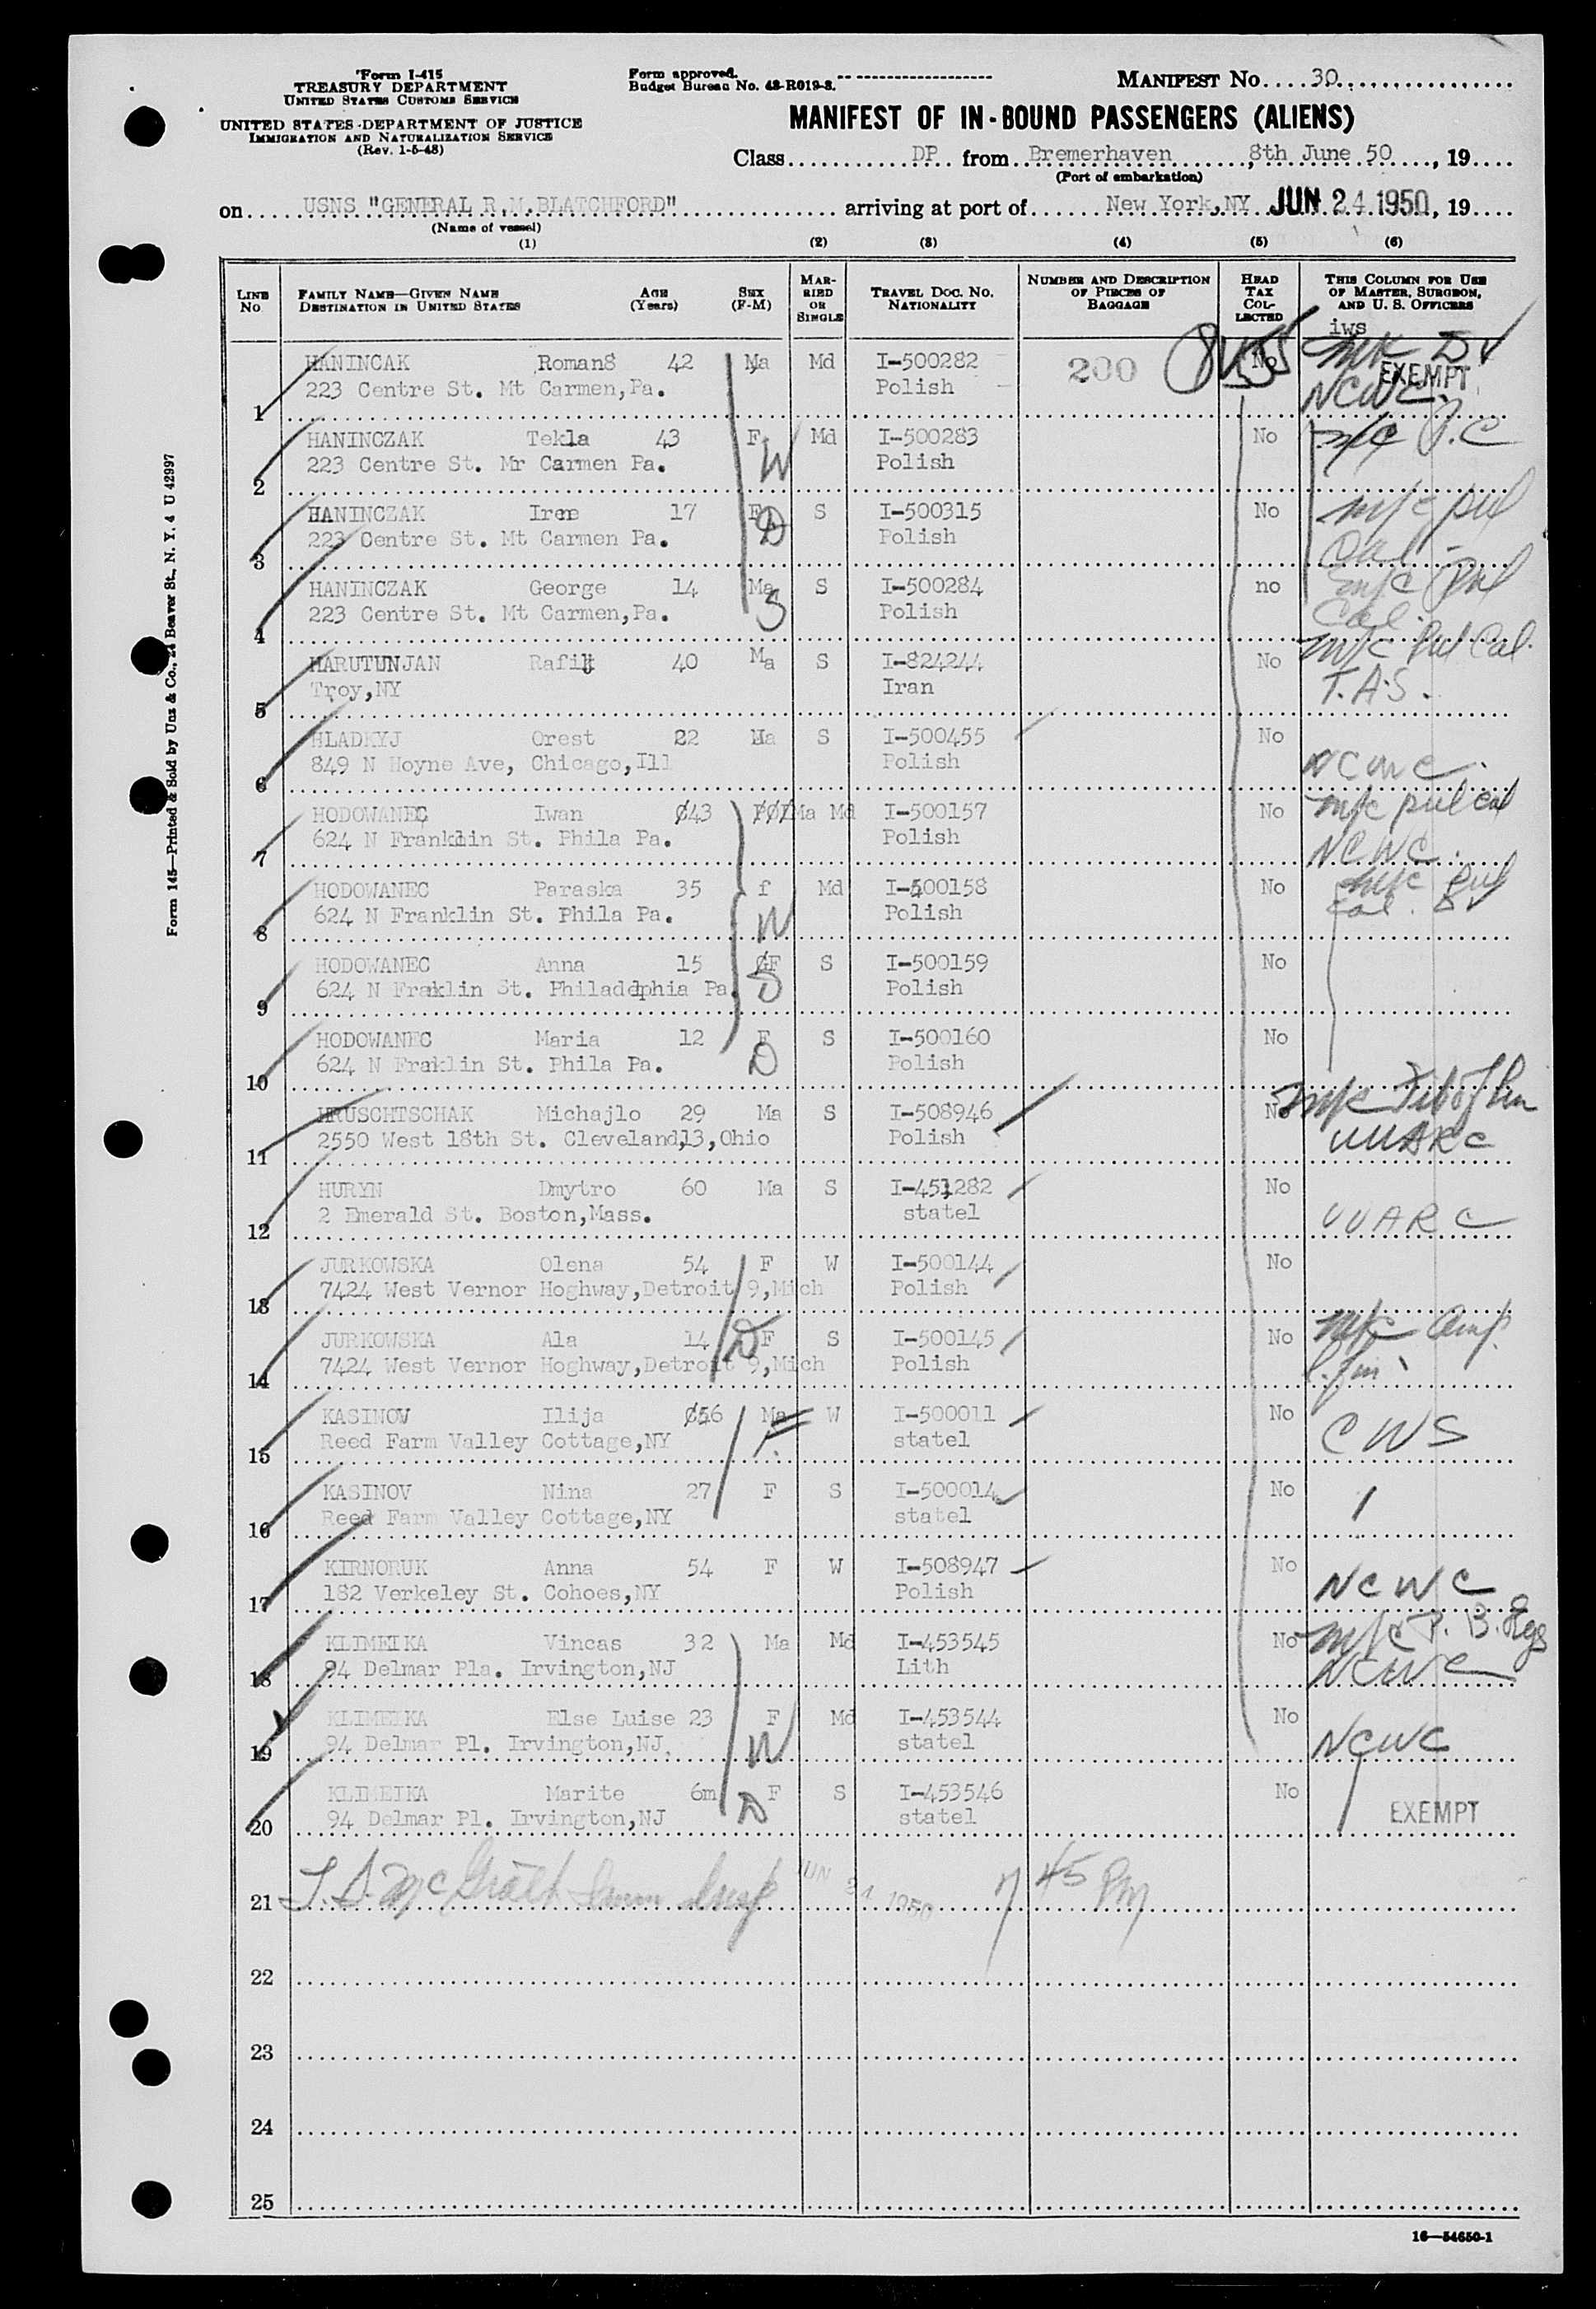 Form I-415
TREASURY DEPARTMENT
UNITED STATES CUSTOMS SERVICE
UNITED STATES DEPARTMENT OF JUSTICE
IMMIGRATION AND NATURALIZATION SERVICE
(Rev. 1-5-48)
Form approved.
Budget Bureau No. 43-R019-3.
MANIFEST No. 30
MANIFEST OF IN-BOUND PASSENGERS (ALIENS)
Class DP from Bremerhaven, 8th June 50, 19
(Port of embarkation)
on USNS "GENERAL R.M.BLATCHFORD" arriving at port of New York,NY JUN 24 1950, 19
(Name of vessel)
(1) (2) (3) (4) (5) (6)
LINE No. FAMILY NAME—GIVEN NAME DESTINATION IN UNITED STATES AGE (Years) SEX (F-M) MARRIED OR SINGLE TRAVEL DOC. No. NATIONALITY NUMBER AND DESCRIPTION OF PIECES OF BAGGAGE HEAD TAX COLLECTED THIS COLUMN FOR USE OF MASTER, SURGEON, AND U. S. OFFICERS
iws
HANINCAK Roman8 42 Ma Md I-500282 200 No EXEMPT
1 223 Centre St. Mt Carmen,Pa. Polish NCWC
HANINCZAK Tekla 43 F W Md I-500283 No
2 223 Centre St. Mr Carmen Pa. Polish
HANINCZAK Iree 17 F D S I-500315 No m/c pul
3 223 Centre St. Mt Carmen Pa. Polish Cal
HANINCZAK George 14 Ma S S I-500284 no m/c Pul
4 223 Centre St. Mt Carmen,Pa. Polish Cal.
HARUTUNJAN Rafik 40 Ma S I-824244 No m/c Pul Cal.
5 Troy,NY Iran T.A.S.
HLADKYJ Orest 22 Ma S I-500455 No
6 849 N Hoyne Ave, Chicago,Ill Polish NCWC.
HODOWANEC Iwan 43 Ma Md I-500157 No m/c pul cal
7 624 N Franklin St. Phila Pa. Polish NCWC.
HODOWANEC Paraska 35 f Md I-500158 No m/c pul
8 624 N Franklin St. Phila Pa. W Polish cal.
HODOWANEC Anna 15 F S I-500159 No
9 624 N Franklin St. Philadelphia Pa. D Polish
HODOWANEC Maria 12 F S I-500160 No
10 624 N Franklin St. Phila Pa. D Polish
HRUSCHTSCHAK Michajlo 29 Ma S I-508946 No m/c
11 2550 West 18th St. Cleveland,13,Ohio Polish UUARC
HURYN Dmytro 60 Ma S I-451282 No
12 2 Emerald St. Boston,Mass. statel UUARC
JURKOWSKA Olena 54 F W I-500144 No
13 7424 West Vernor Hoghway,Detroit 9,Mich Polish
JURKOWSKA Ala 14 D F S I-500145 No m/c Amp.
14 7424 West Vernor Hoghway,Detroit 9,Mich Polish
KASINOV Ilija 56 Ma W I-500011 No CWS
15 Reed Farm Valley Cottage,NY F. statel
KASINOV Nina 27 F S I-500014 No
16 Reed Farm Valley Cottage,NY statel
KIRNORUK Anna 54 F W I-508947 No
17 182 Verkeley St. Cohoes,NY Polish NCWC
KLIMEIKA Vincas 32 Ma Md I-453545 No m/c
18 94 Delmar Pla. Irvington,NJ Lith NCWC
KLIMEIKA Else Luise 23 F Md I-453544 No
19 94 Delmar Pl. Irvington,NJ. W statel NCWC
KLIMEIKA Marite 6m F S I-453546 No
20 94 Delmar Pl. Irvington,NJ D statel EXEMPT
21 McGrath Imm Insp JUN 24 1950 7 45 Pm
22
23
24
25
16—54650-1
Form 145—Printed & Sold by Unz & Co., 24 Beaver St., N. Y. 4 U 42997